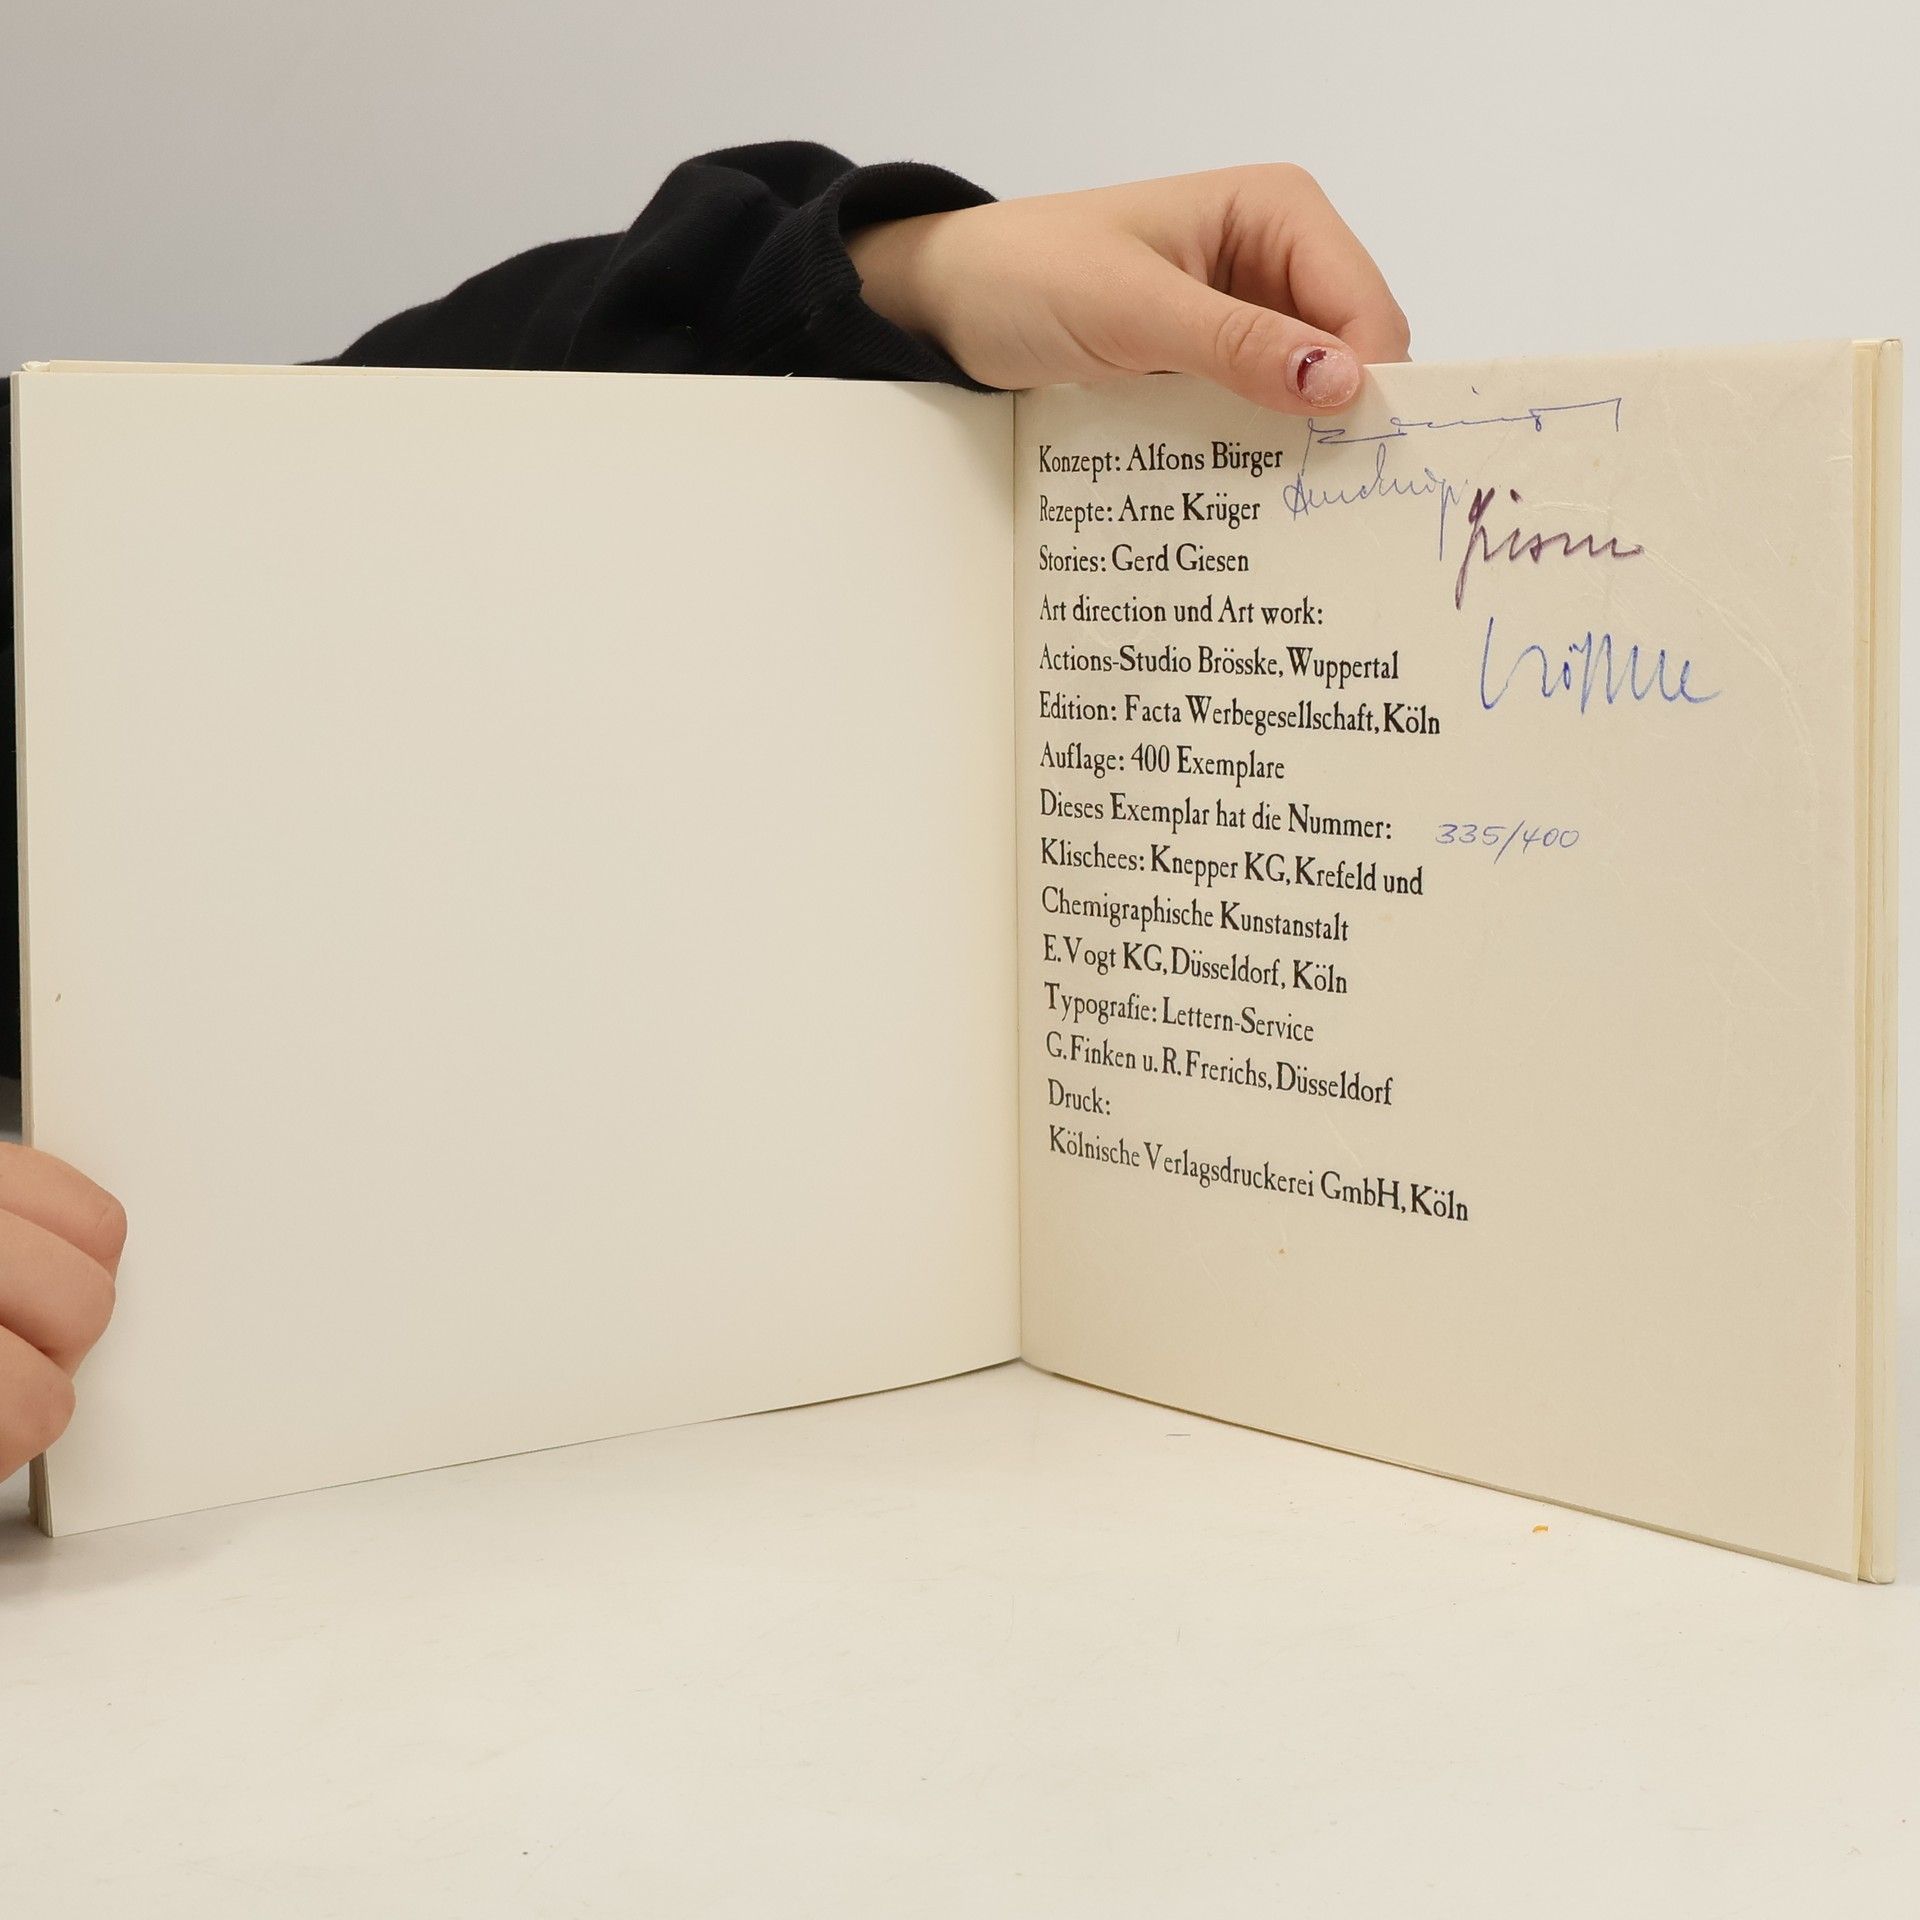 Konzept: Alfons Bürger
Rezepte: Arne Krüger
Stories: Gerd Giesen
Giesen
Art direction und Art work:
Actions-Studio Brösske, Wuppertal
Brösske
Edition: Facta Werbegesellschaft, Köln
Auflage: 400 Exemplare
Dieses Exemplar hat die Nummer: 335/400
Klischees: Knepper KG, Krefeld und
Chemigraphische Kunstanstalt
E. Vogt KG, Düsseldorf, Köln
Typografie: Lettern-Service
G. Finken u. R. Frerichs, Düsseldorf
Druck:
Kölnische Verlagsdruckerei GmbH, Köln